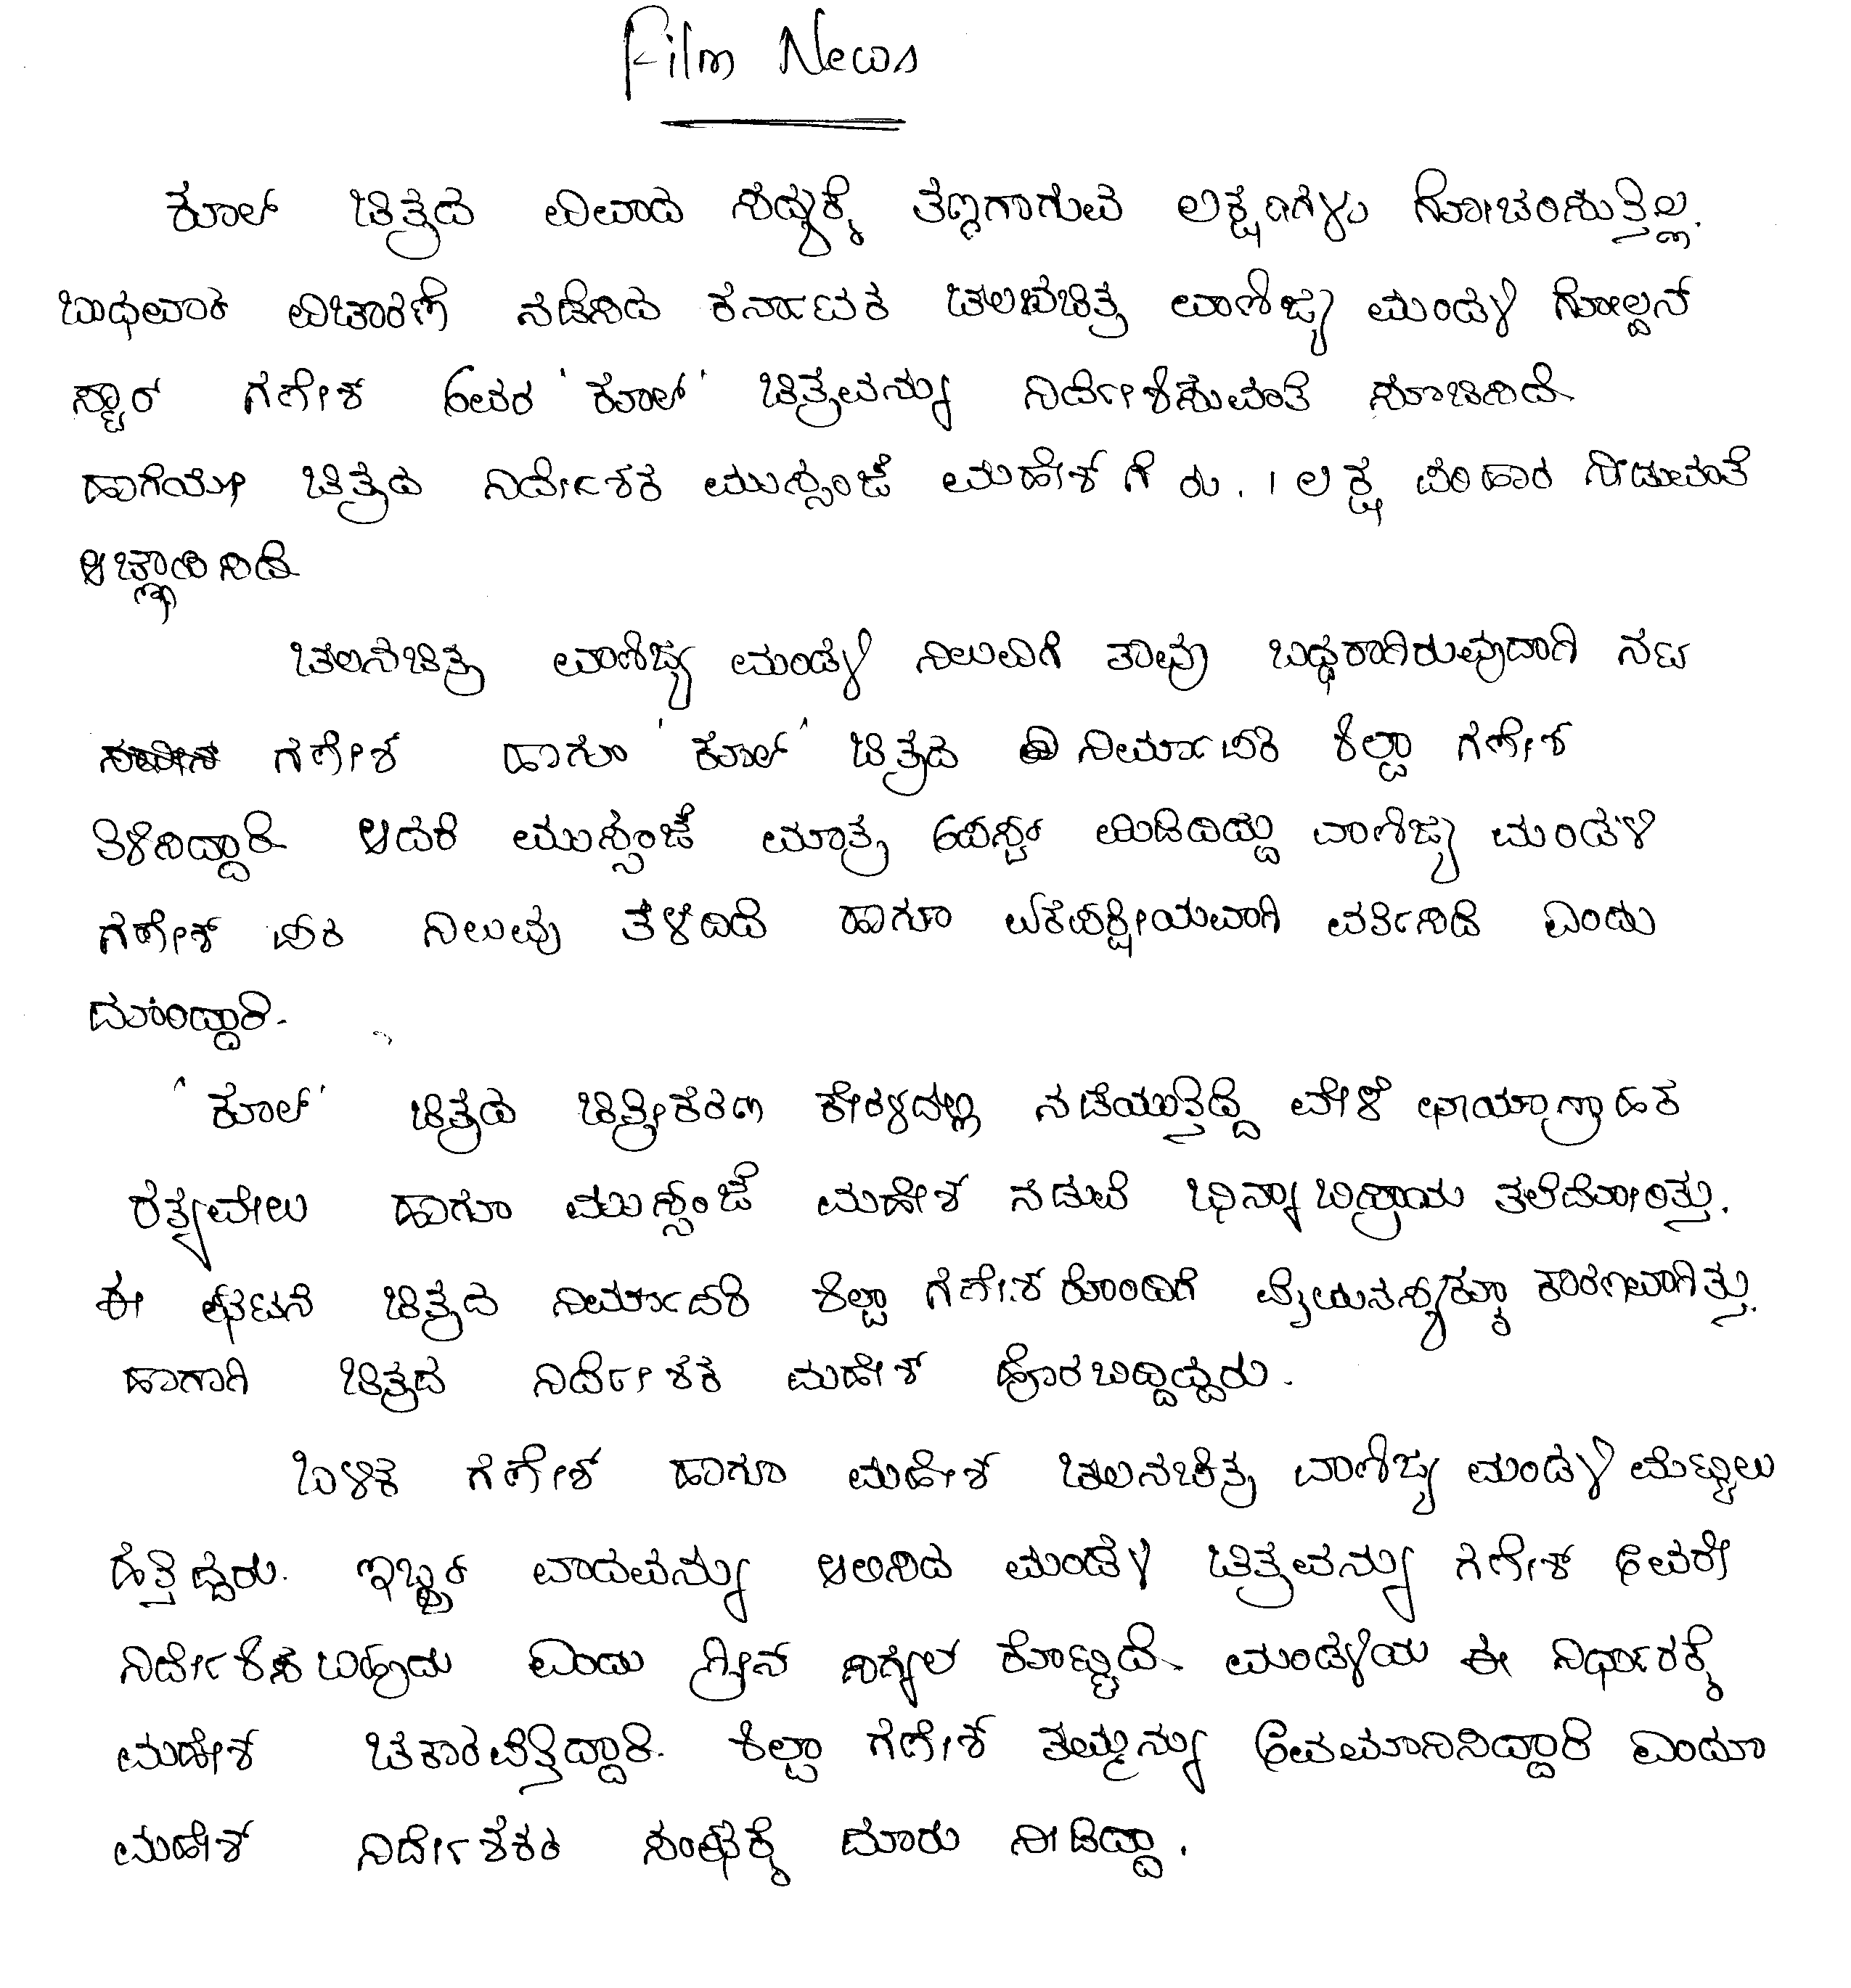 Film News
ಕೂಲ್ ಚಿತ್ರದ ವಿವಾದ ಸದ್ಯಕ್ಕೆ ತಣ್ಣಗಾಗುವ ಲಕ್ಷಣಗಳು ಗೋಚರಿಸುತ್ತಿಲ್ಲ.
ಬುಧವಾರ ವಿಚಾರಣೆ ನಡೆಸಿದ ಕರ್ನಾಟಕ ಚಲನಚಿತ್ರ ವಾಣಿಜ್ಯ ಮಂಡಳಿ ಗೋಲ್ಡನ್
ಸ್ಟಾರ್ ಗಣೇಶ ಅವರ 'ಕೂಲ್' ಚಿತ್ರವನ್ನು ನಿರ್ದೇಶಿಸುವಂತೆ ಸೂಚಿಸಿದೆ
ಹಾಗೆಯೇ ಚಿತ್ರದ ನಿರ್ದೇಶಕ ಮುಸ್ಸಂಜೆ ಮಹೇಶ್ ಗೆ ರು. 1 ಲಕ್ಷ ಪರಿಹಾರ ನೀಡುವಂತೆ
ಆಜ್ಞಾಪಿಸಿದೆ
ಚಲನಚಿತ್ರ ವಾಣಿಜ್ಯ ಮಂಡಳಿ ನಿಲುವಿಗೆ ತಾವು ಬದ್ಧರಾಗಿರುವುದಾಗಿ ನಟ
ಗಣೇಶ ಹಾಗೂ 'ಕೂಲ್' ಚಿತ್ರದ ನಿರ್ಮಾಪಕಿ ಶಿಲ್ಪಾ ಗಣೇಶ್
ತಿಳಿಸಿದ್ದಾರೆ. ಆದರೆ ಮುಸ್ಸಂಜೆ ಮಾತ್ರ ಅಪಸ್ವರ ಮಿಡಿದಿದ್ದು ವಾಣಿಜ್ಯ ಮಂಡಳಿ
ಗಣೇಶ್ ಪರ ನಿಲುವು ತಳೆದಿದೆ ಹಾಗೂ ಏಕಪಕ್ಷೀಯವಾಗಿ ವರ್ತಿಸಿದೆ ಎಂದು
ದೂರಿದ್ದಾರೆ.
'ಕೂಲ್' ಚಿತ್ರದ ಚಿತ್ರೀಕರಣ ಕೇರಳದಲ್ಲಿ ನಡೆಯುತ್ತಿದ್ದ ವೇಳೆ ಛಾಯಾಗ್ರಾಹಕ
ರತ್ನವೇಲು ಹಾಗೂ ಮುಸ್ಸಂಜೆ ಮಹೇಶ ನಡುವೆ ಭಿನ್ನಾಬಿಪ್ರಾಯ ತಲೆದೋರಿತ್ತು.
ಈ ಘಟನೆ ಚಿತ್ರದ ನಿರ್ಮಾಪಕಿ ಶಿಲ್ಪಾ ಗಣೇಶರೊಂದಿಗೆ ವೈಮನಸ್ಯಕ್ಕೂ ಕಾರಣವಾಗಿತ್ತು.
ಹಾಗಾಗಿ ಚಿತ್ರದ ನಿರ್ದೇಶಕ ಮಹೇಶ್ ಹೊರಬಿದ್ದಿದ್ದರು.
ಬಳಿಕ ಗಣೇಶ್ ಹಾಗೂ ಮಹೇಶ್ ಚಲನಚಿತ್ರ ವಾಣಿಜ್ಯ ಮಂಡಳಿ ಮೆಟ್ಟಿಲು
ಹತ್ತಿದ್ದರು. ಇಬ್ಬರ ವಾದವನ್ನು ಆಲಿಸಿದ ಮಂಡಳಿ ಚಿತ್ರವನ್ನು ಗಣೇಶ್ ಅವರೇ
ನಿರ್ದೇಶಿಸಬಹುದು ಎಂದು ಗ್ರೀನ್ ಸಿಗ್ನಲ್ ಕೊಟ್ಟಿದೆ. ಮಂಡಳಿಯ ಈ ನಿರ್ಧಾರಕ್ಕೆ
ಮಹೇಶ್ ಚಕಾರವೆತ್ತಿದ್ದಾರೆ. ಶಿಲ್ಪಾ ಗಣೇಶ್ ತಮ್ಮನ್ನು ಅವಮಾನಿಸಿದ್ದಾರೆ ಎಂದೂ
ಮಹೇಶ್ ನಿರ್ದೇಶಕರ ಸಂಘಕ್ಕೆ ದೂರು ನೀಡಿದ್ದಾ.